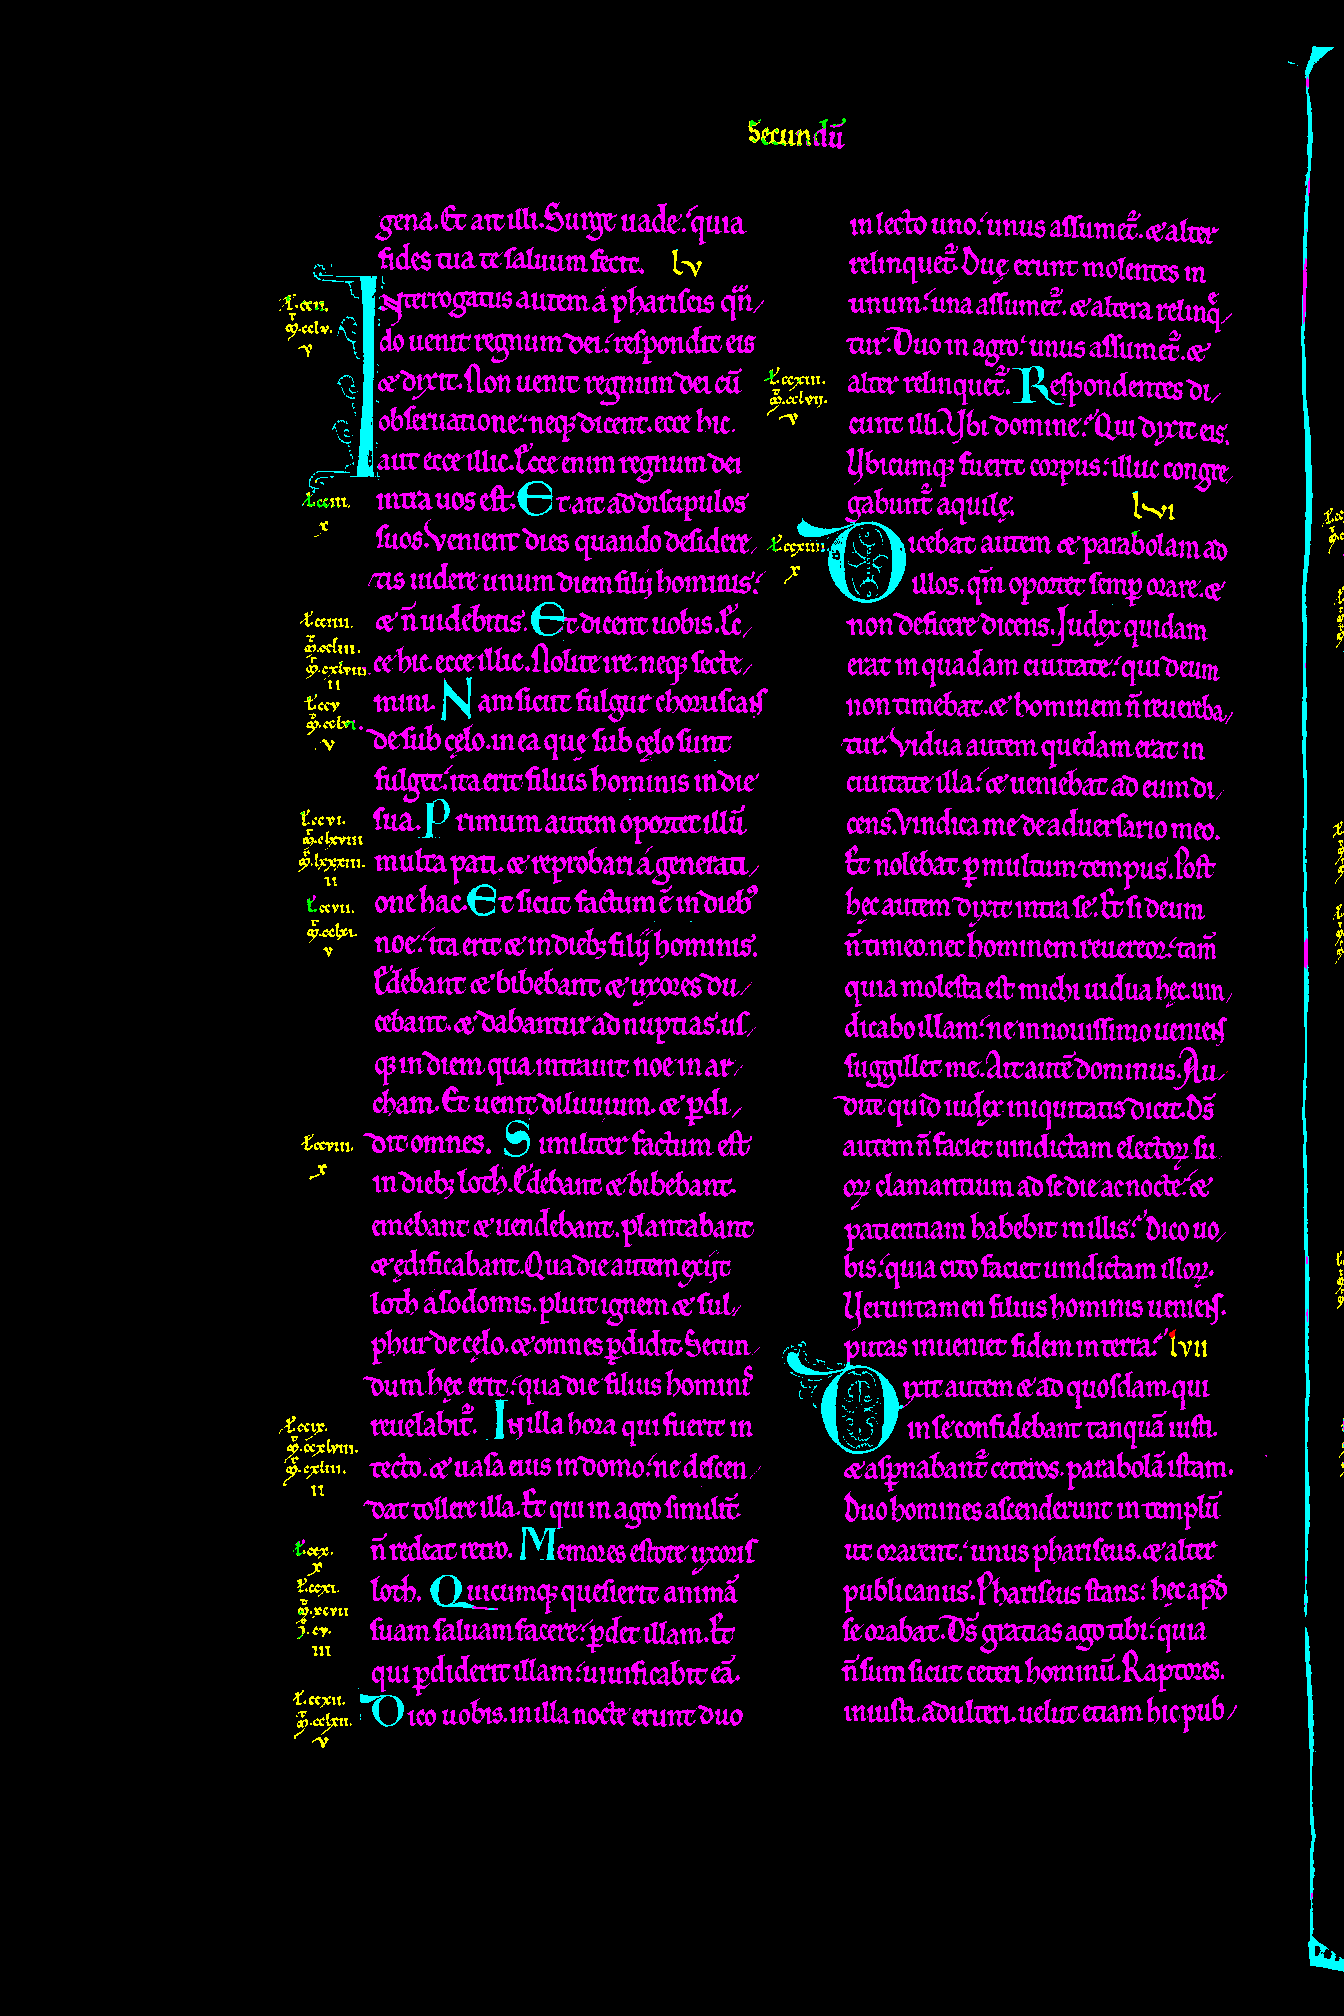 Secundū
gena. Et ait illi. Surge uade: quia
fides tua te saluum fecit. lv
Interrogatus autem a phariseis qn̄
do uenit regnum dei: respondit eis
& dixit. Non uenit regnum dei cū
obseruatione: neq; dicent. ecce hic.
aut ecce illic. Ecce enim regnum dei
intra uos est. Et ait ad discipulos
suos. Venient dies quando desidere
tis uidere unum diem filij hominis:
& n̄ uidebitis. Et dicent uobis. Ec
ce hic. ecce illic. Nolite ire. neq; secte
mini. Nam sicut fulgur choruscans
de sub cęlo. in ea quę sub cęlo sunt
fulget: ita erit filius hominis in die
sua. Primum autem oportet illū
multa pati. & reprobari a generati
one hac. Et sicut factum ē in dieb'
noe: ita erit & in dieb; filij hominis.
Edebant & bibebant & uxores du
cebant. & dabantur ad nuptias. us
q; in diem qua intrauit noe in ar
cham. Et uenit diluuium. & p̄di
dit omnes. Similiter factum est
in dieb; loth. Edebant & bibebant.
emebant & uendebant. plantabant
& ędificabant. Qua die autem exijt
loth a sodomis. pluit ignem & sul
phur de cęlo. & omnes p̄didit. Secun
dum hęc erit: qua die filius hominis
reuelabit᷑. In illa hora qui fuerit in
tecto. & uasa eius in domo: ne descen
dat tollere illa. Et qui in agro similit̄
n̄ redeat retro. Memores estote uxoris
loth. Quicumq; quesierit animā
suam saluam facere: p̄det illam. Et
qui p̄diderit illam: uiuificabit eā.
Dico uobis. in illa nocte erunt duo
in lecto uno: unus assumet᷑. & alter
relinquet᷑. Duę erunt molentes in
unum: una assumet᷑. & altera relinq
tur. Duo in agro: unus assumet᷑. &
alter relinquet᷑. Respondentes di
cunt illi. Vbi domine? Qui dixit eis.
Vbicumq; fuerit corpus: illuc congre
gabunt᷑ aquilę. lvi
Dicebat autem & parabolam ad
illos. qm̄ oportet semp̄ orare. &
non deficere dicens. Judex quidam
erat in quadam ciuitate: qui deum
non timebat. & hominem n̄ reuereba
tur. Vidua autem quedam erat in
ciuitate illa: & ueniebat ad eum di
cens. Vindica me de aduersario meo.
Et nolebat p̄ multum tempus. Post
hęc autem dixit intra se. Et si deum
n̄ timeo. nec hominem reuereor: tam̄
quia molesta est michi uidua hęc. uin
dicabo illam: ne in nouissimo ueniens
suggillet me. Ait autē dominus. Au
dite quid iudex iniquitatis dicit. Ds̄
autem n̄ faciet uindictam electoꝝ su
oꝝ clamantium ad se die ac nocte: &
patientiam habebit in illis? Dico uo
bis: quia cito faciet uindictam illoꝝ.
Veruntamen filius hominis ueniens.
putas inueniet fidem in terra? lvii
Dixit autem & ad quosdam. qui
in se confidebant tanquā iusti.
& asp̄nabant᷑ ceteros. parabolā istam.
Duo homines ascenderunt in templū
ut orarent: unus phariseus. & alter
publicanus. Phariseus stans: hęc apd̄
se orabat. Ds̄ gratias ago tibi: quia
n̄ sum sicut ceteri hominū. Raptores.
iniusti. adulteri. uelut etiam hic pub